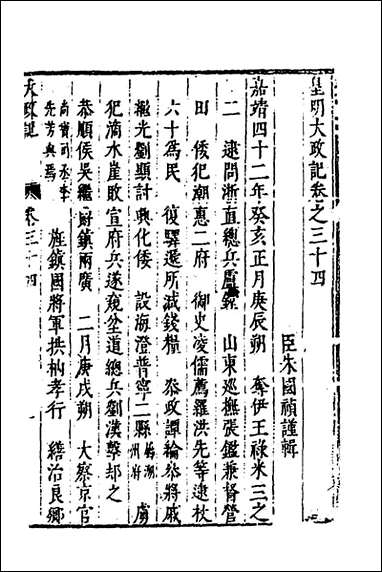 皇明大政記卷之三十四
臣朱國禎謹輯
嘉靖四十二年癸亥正月庚辰朔　奪伊王祿米三之
二　逮問浙直總兵盧鏜　山東巡撫張鑑兼督營
田　倭犯潮惠二府　御史凌儒薦羅洪先等逮杖
六十為民　復驛遞所減錢糧　叅政譚綸叅將戚
繼光劉顯討興化倭　設海澄普寧二縣潮州府　虜
犯滴水崖敗宣府兵遂窺坌道總兵劉漢擊却之
恭順侯吳繼爵鎮兩廣　二月庚戌朔　大察京官
尚寶司丞李先芳與焉　旌鎮國將軍拱枘孝行　繕治良鄉
大政記　卷三十四　一